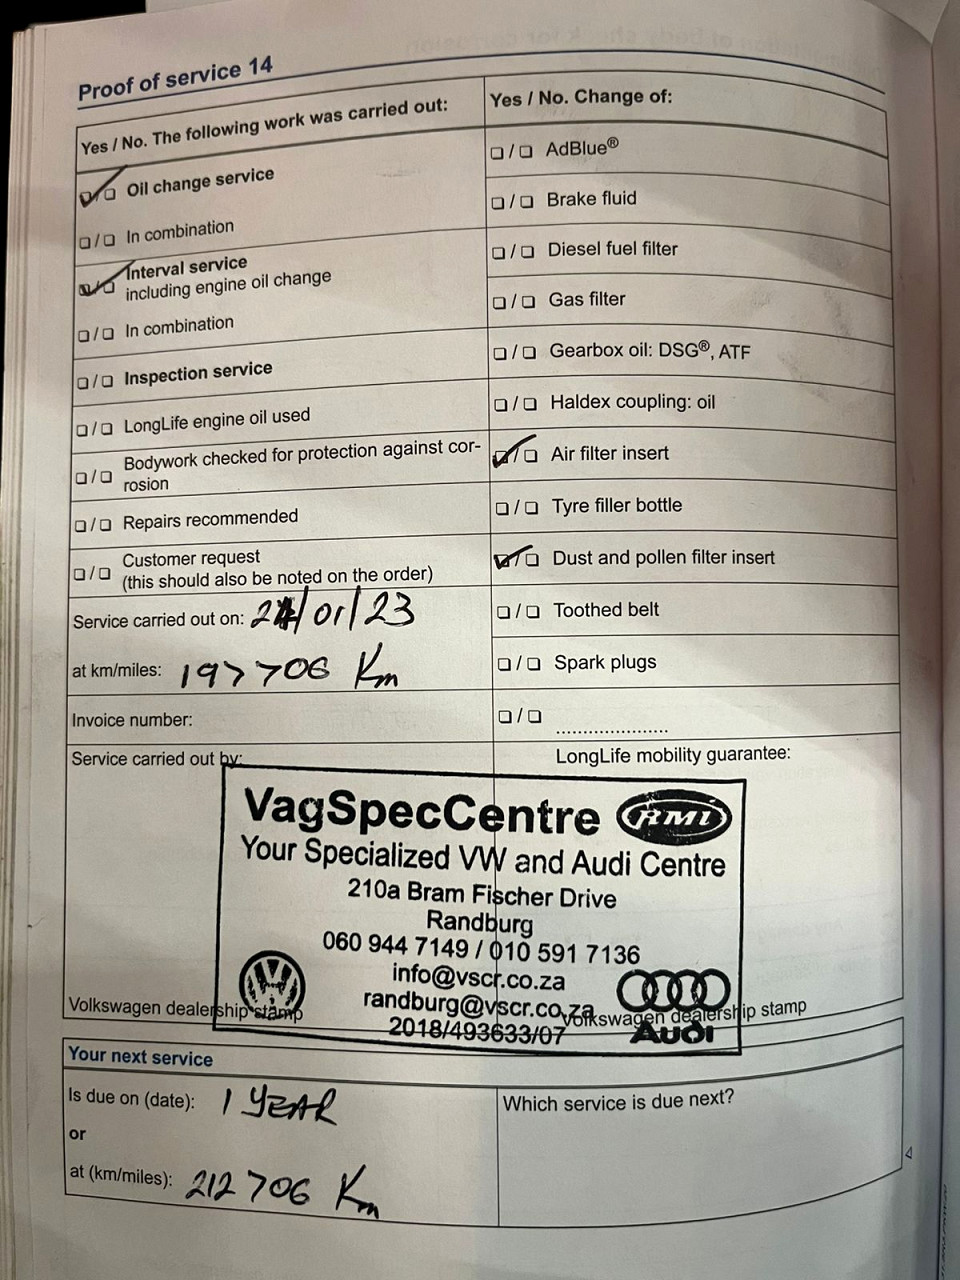 Proof of service 14
Yes / No. The following work was carried out:
Oil change service
In combination
Interval service
including engine oil change
In combination
Inspection service
LongLife engine oil used
Bodywork checked for protection against cor-
rosion
Repairs recommended
Customer request
(this should also be noted on the order)
Service carried out on: 24/01/23
at km/miles: 197706 Km
Invoice number:
Service carried out by:
Yes / No. Change of:
AdBlue®
Brake fluid
Diesel fuel filter
Gas filter
Gearbox oil: DSG®, ATF
Haldex coupling: oil
Air filter insert
Tyre filler bottle
Dust and pollen filter insert
Toothed belt
Spark plugs
LongLife mobility guarantee:
VagSpecCentre RMI
Your Specialized VW and Audi Centre
210a Bram Fischer Drive
Randburg
060 944 7149 / 010 591 7136
info@vscr.co.za
randburg@vscr.co.za
2018/493633/07
Audi
Volkswagen dealership stamp
Volkswagen dealership stamp
Your next service
Is due on (date): 1 YEAR
or
at (km/miles): 212706 Km
Which service is due next?